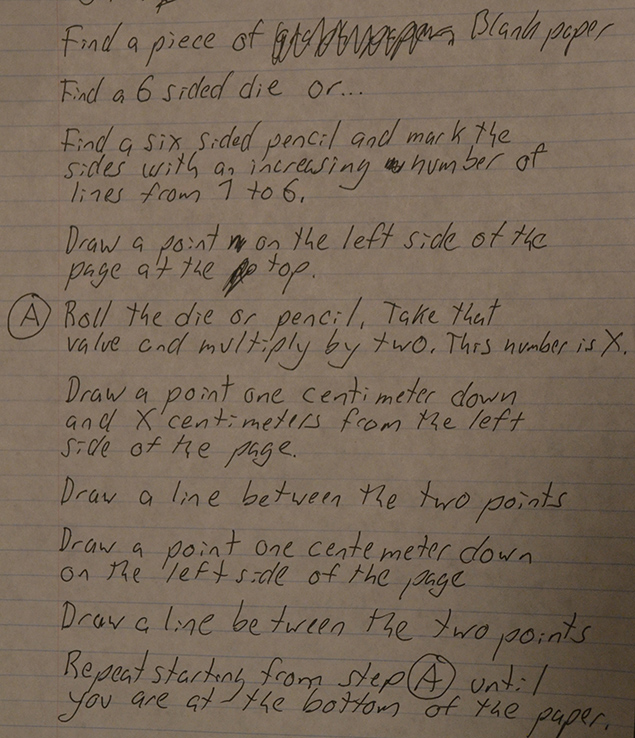 Find a piece of Blank paper
Find a 6 sided die or...
Find a six sided pencil and mark the
sides with an increasing number of
lines from 1 to 6.
Draw a point on the left side of the
page at the top.
A Roll the die or pencil. Take that
value and multiply by two. This number is X.
Draw a point one centimeter down
and X centimeters from the left
side of the page.
Draw a line between the two points
Draw a point one centemeter down
on the left side of the page
Draw a line between the two points
Repeat starting from step A until
you are at the bottom of the paper.